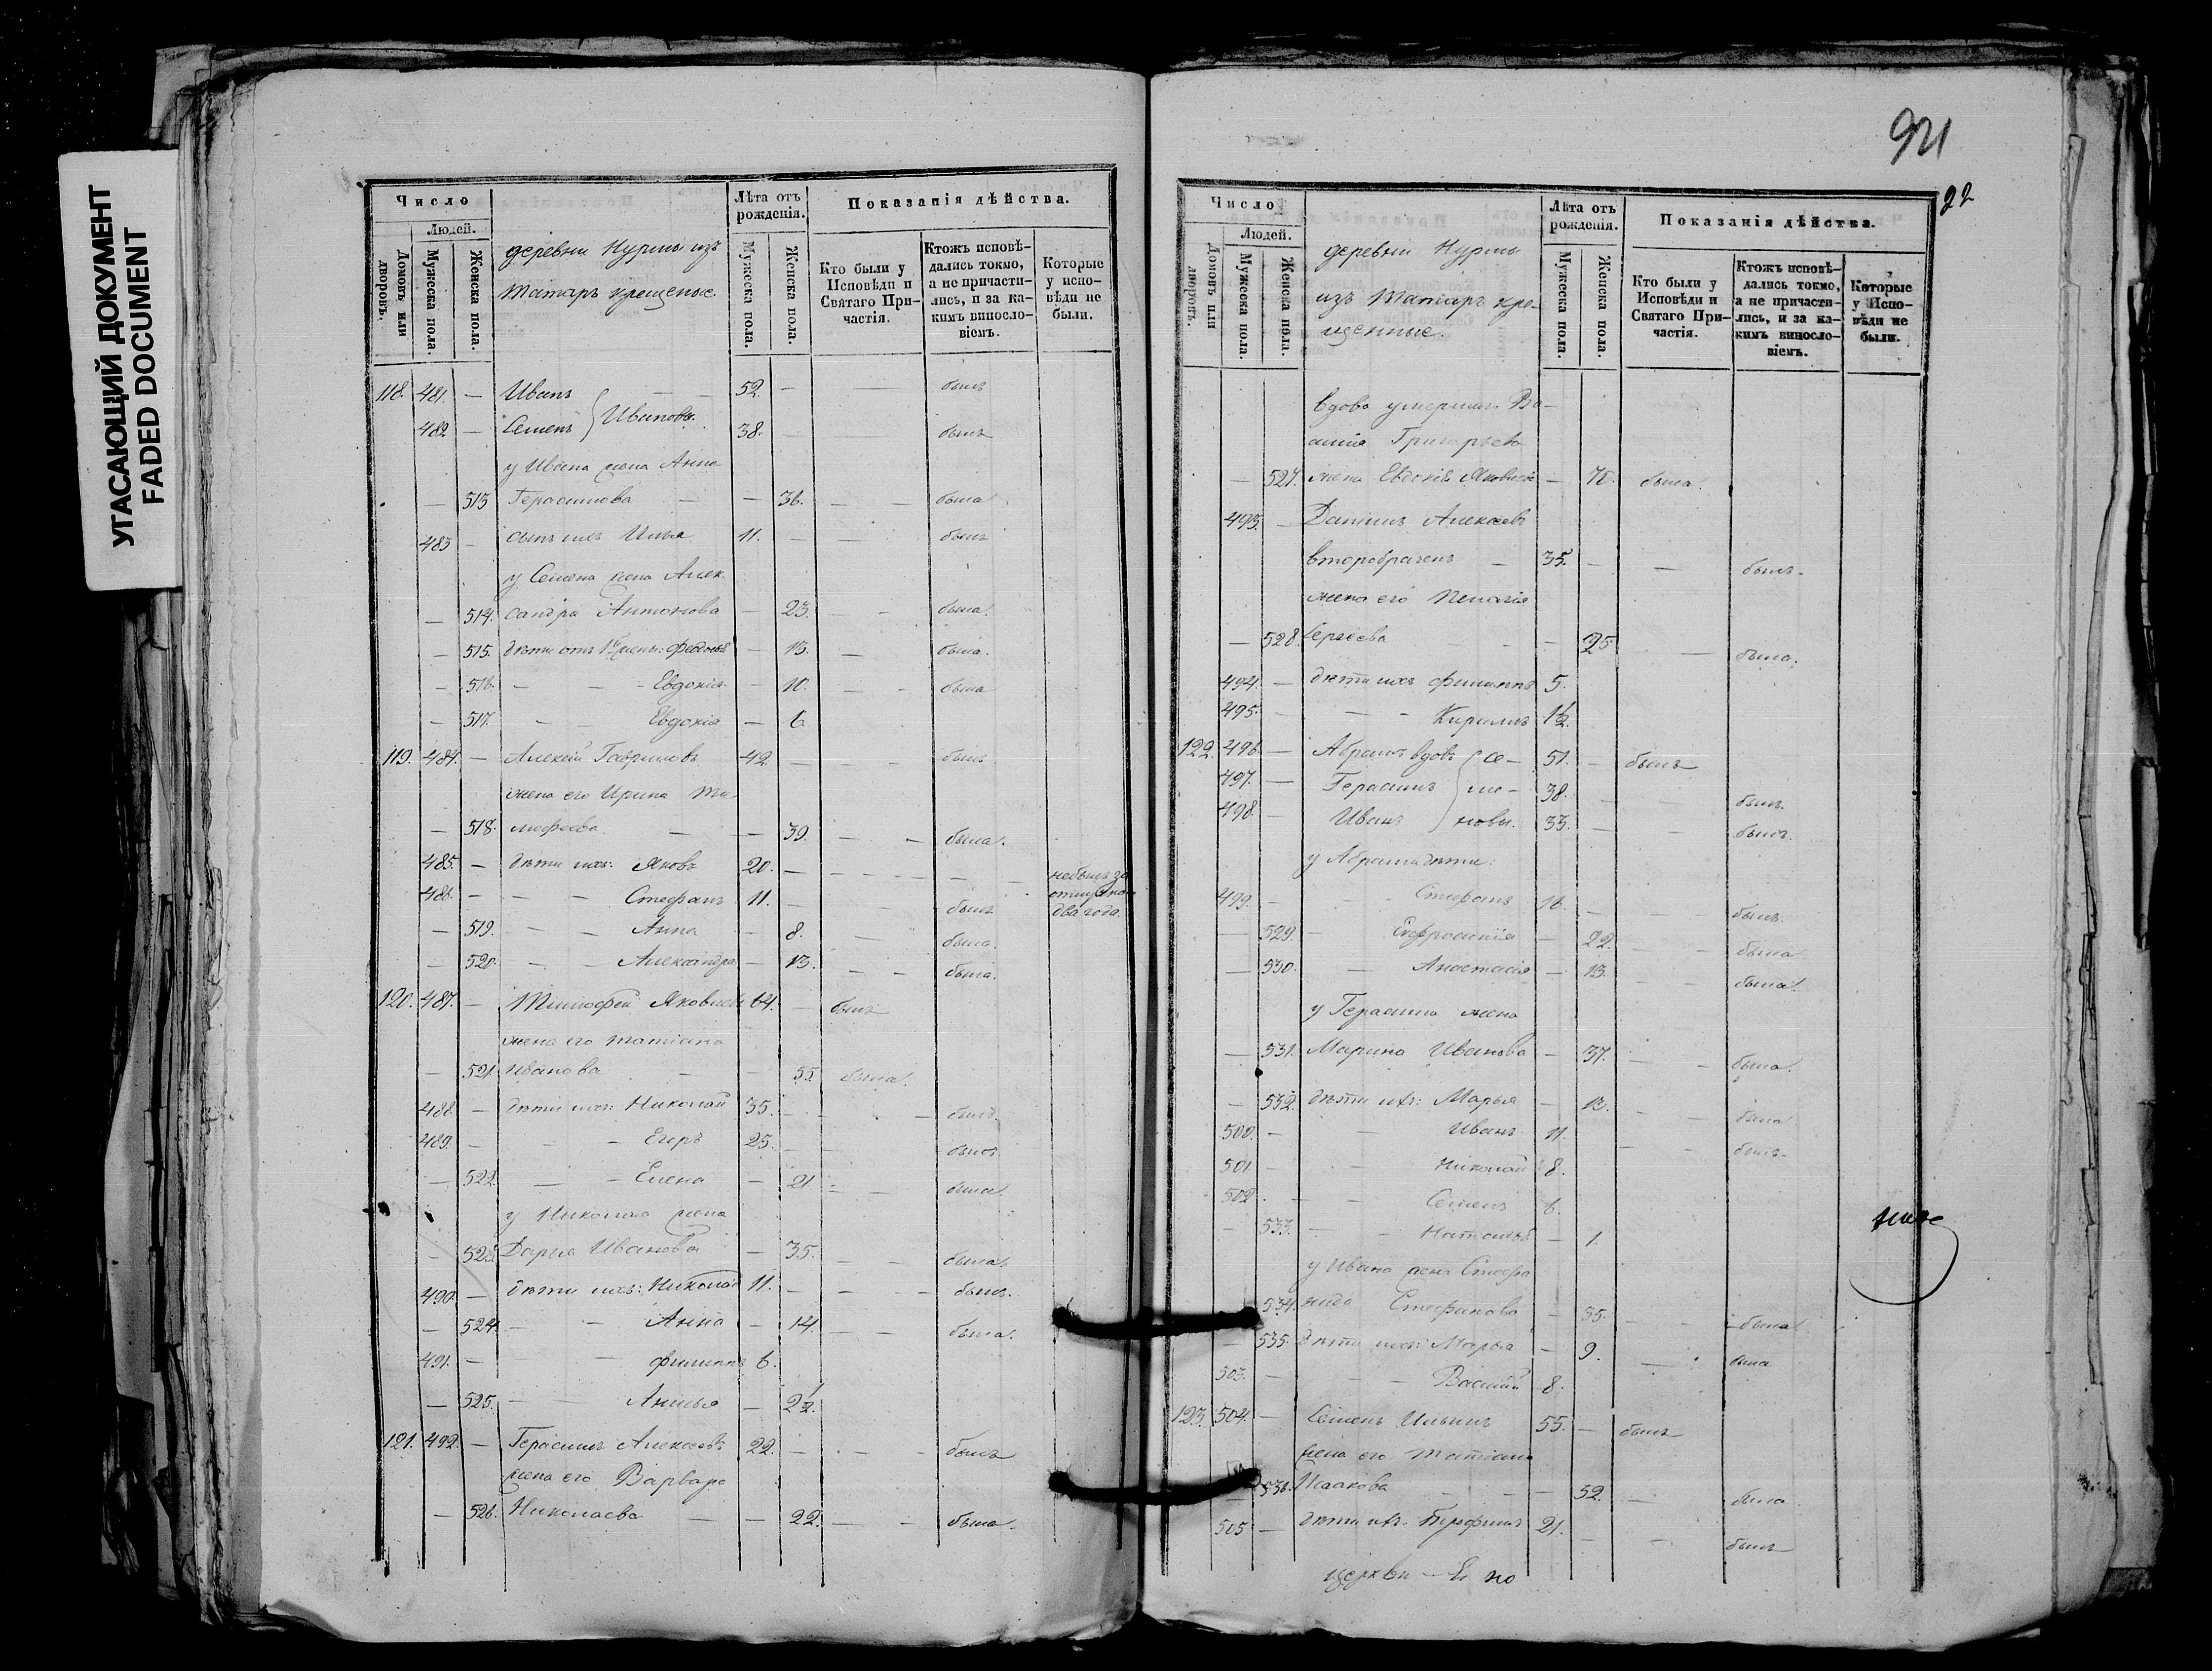 УГАСАЮЩИЙ ДОКУМЕНТ
FADED DOCUMENT
Число
Людей.
Домовъ или дворовъ.
Мужеска пола.
Женска пола.
деревни Нурмы изъ
татаръ крещеные.
Лѣта отъ рожденія.
Мужеска пола.
Женска пола.
Показанія дѣйства.
Кто были у Исповѣди и Святаго Причастія.
Ктожъ исповѣдались токмо, а не причастились, и за какимъ винословіемъ.
Которые у исповѣди не были.
118. 481. — Иванъ — — 52. — — былъ
482 — Семенъ } Ивановы. 38. — — былъ
у Ивана жена Анна
— 513 Герасимова — — 36. — — была.
483 — сынъ ихъ Илья 11. — — былъ
у Семена жена Алек
— 514. сандра Антонова — 23. — — была.
— 515. дѣти отъ 1й жены: — 13. — была.
— 516. — — Евдокія — 10. — — была
— 517. — — Евдокія — 6.
119. 484. — Алексѣй Гавриловъ 42. — — — былъ
жена его Ирина Ти-
— 518. мофеева — — 39. — — была.
485. — дѣти ихъ: Яковъ 20. — — — не былъ за
486. — — — Стефанъ 11. — — былъ
два года.
— 519. — — Анна — 8. — была.
— 520. — — Александра — 13. — — была.
120. 487. — Тимофей Яковлевъ 64. — былъ
жена его татіана
— 521. Иванова — — 55 была.
488. — дѣти ихъ: Николай 35. — — былъ.
489. — — Егоръ 25. — — былъ.
— 522. — — Елена — 21. — — была.
у Николая жена
— 523. Дарья Иванова — 35. — — была.
490. — дѣти ихъ: Николай 11. — — — былъ.
— 524. — — Анна — 14. — — была.
491. — — филиппъ 6.
— 525. — — Анисья — 2½.
121. 492. — Герасимъ Алексеевъ 22. — — — былъ
жена его Варвара
— 526. Николаева — — 22. — — была.
921
22
Число
Людей.
Домовъ или дворовъ.
Мужеска пола.
Женска пола.
деревни Нурмы
изъ татаръ кре-
щенные.
Лѣта отъ рожденія.
Мужеска пола.
Женска пола.
Показанія дѣйства.
Кто были у Исповѣди и Святаго Причастія.
Ктожъ исповѣдались токмо, а не причастились, и за какимъ винословіемъ.
Которые у Исповѣди не были.
вдова умершаго Ва-
силія Григорьева
— 527. жена Евдокія Яковлева — 70. была.
493. — Даніилъ Алексеевъ
второбраченъ — 35. — — былъ.
жена его Пелагія
— 528. Сергеева — — — 25 — была.
494. — дѣти ихъ филиппъ 5.
495. — — — Кириллъ 1½
122. 496. — Абрамъ вдовъ } Се- 51. — былъ
497. — Герасимъ } ме- 38. — былъ.
498. — Иванъ } новы. 33. — — былъ.
у Абрама дѣти:
499. — — Стефанъ 16. — — былъ.
— 529. — Евфросинія — 22. — — была.
— 530. — Анастасія — 13. — — была.
у Герасима жена
— 531. Марина Иванова — 37. — — была.
— 532. дѣти ихъ: Марья — 13. — — была.
500. — — Иванъ 11. — — былъ.
501. — — Николай 8.
502. — — Семенъ 6.
— 533. — — Наталья — 1.
у Ивана жена Стефа
534. нида Стефанова — 35. — — была.
— 535. дѣти ихъ: Марья — 9. — была
503. — — — Василій 8.
123. 504. — Семенъ Ильинъ 55. — былъ
жена его татіана
— 536. Исаакова — — — 52. — была.
505 — дѣти ихъ: Трофимъ 21. — — былъ
церкви